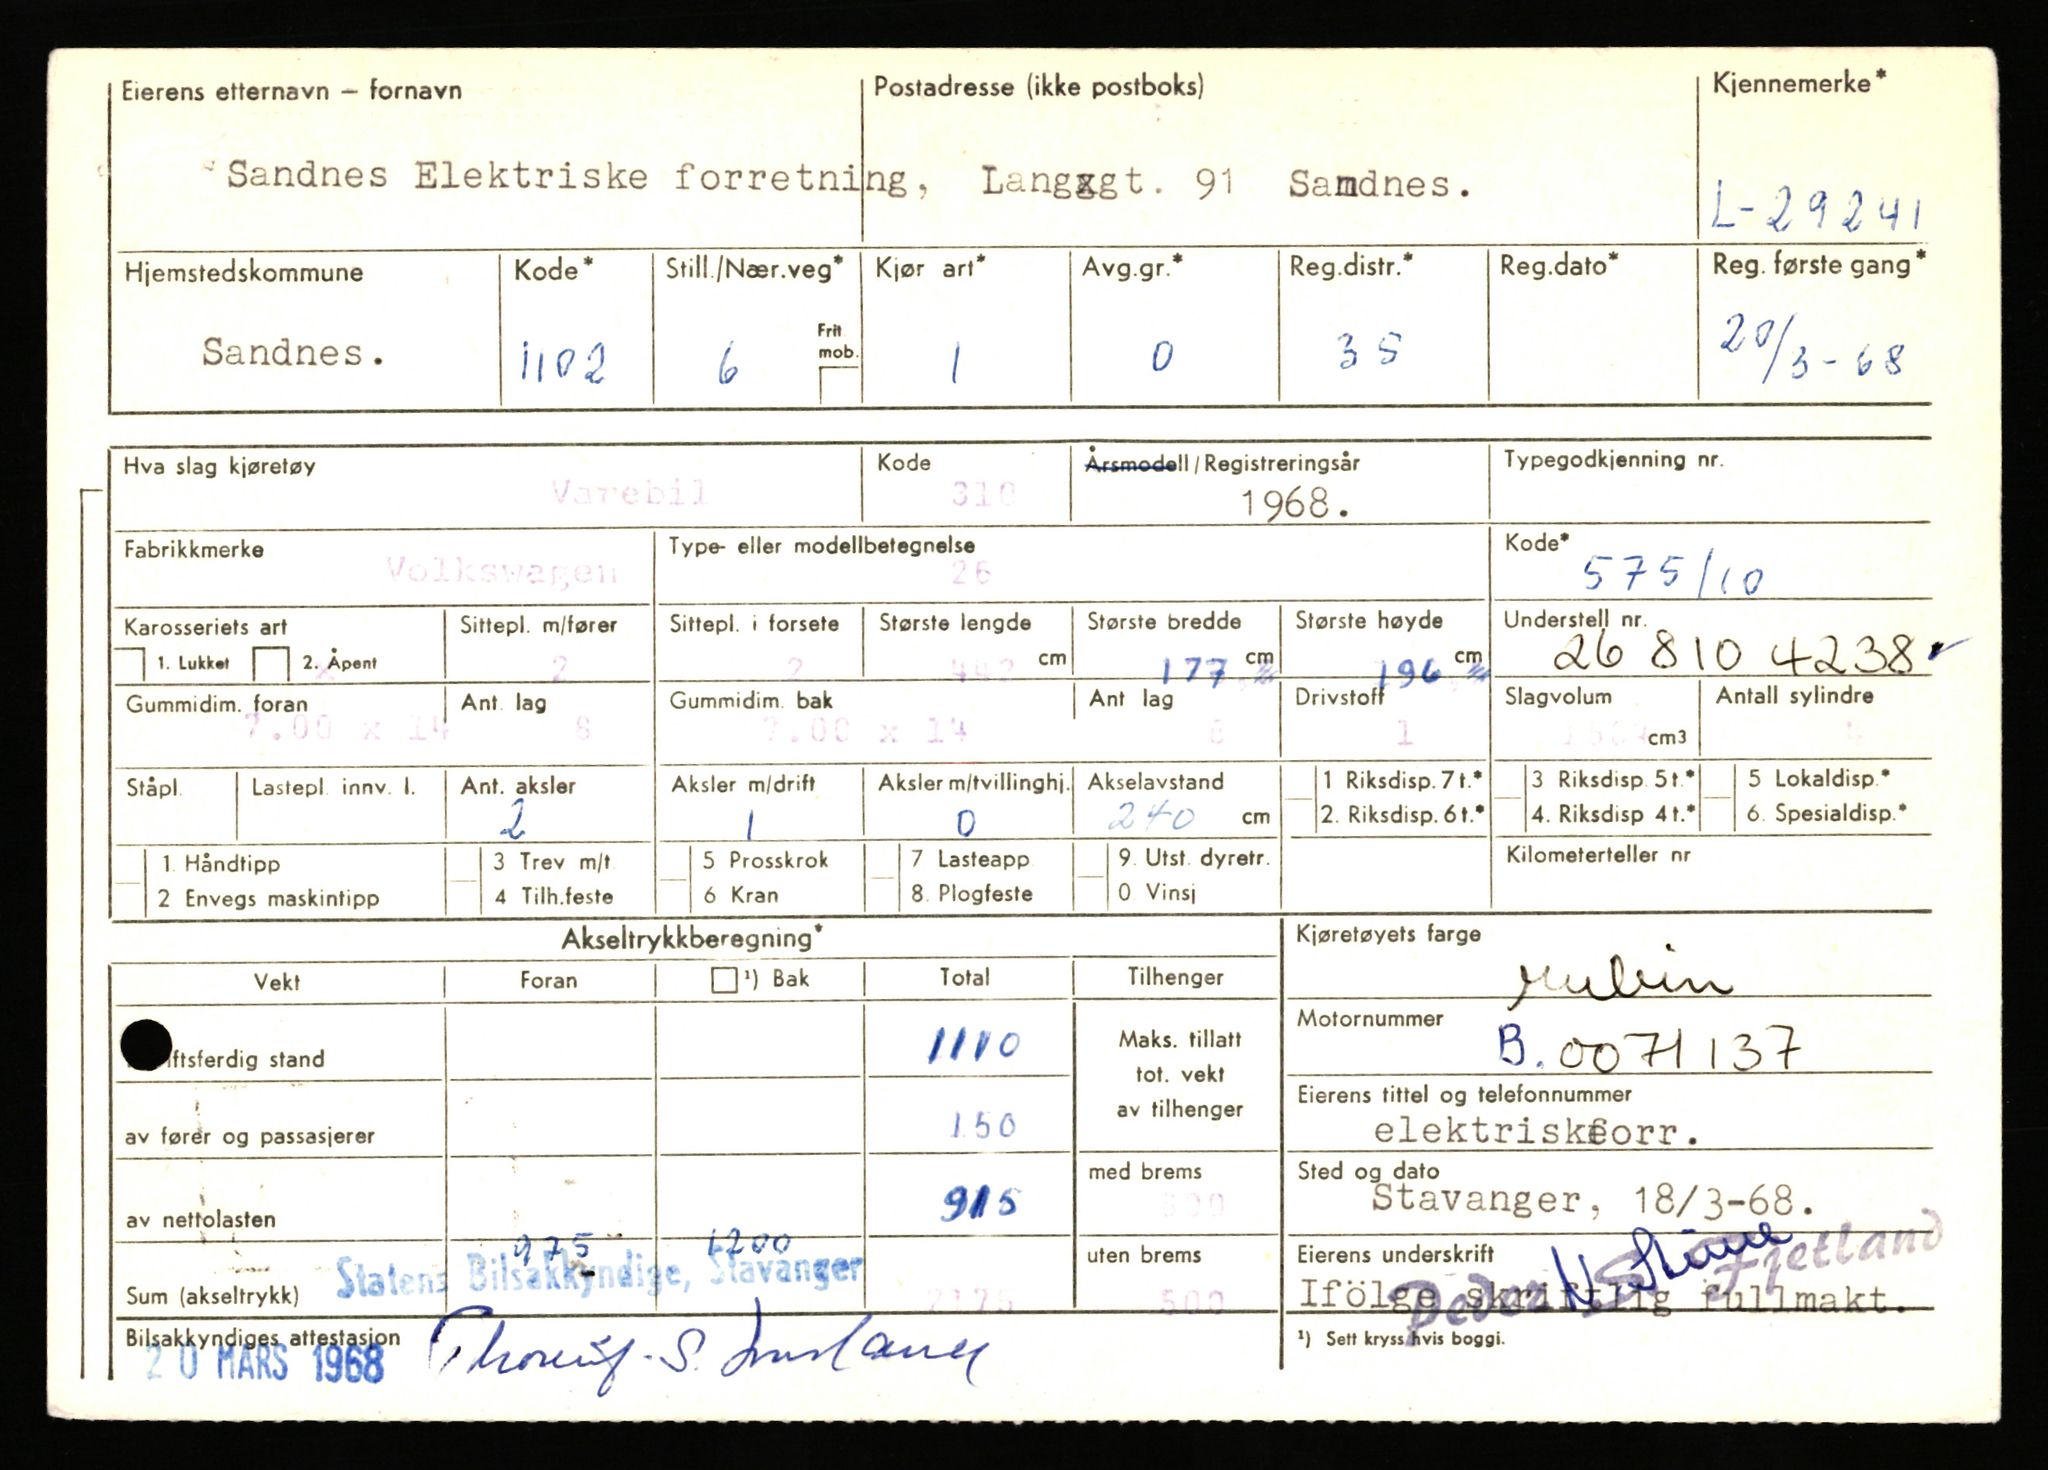 Eierens etternavn – fornavn Postadresse (ikke postboks) Kjennemerke*
Sandnes Elektriske forretning, Langgt. 91 Sandnes.
L-29241
Hjemstedskommune Kode* Still./Nær.veg* Kjør art* Avg.gr.* Reg.distr.* Reg.dato* Reg. første gang*
Frit. mob.
Sandnes. 1102 6 1 0 35 20/3-68
Hva slag kjøretøy Kode Årsmodell/Registreringsår Typegodkjenning nr.
Varebil 310 1968.
Fabrikkmerke Type- eller modellbetegnelse Kode*
Volkswagen 26 575/10
Karosseriets art Sittepl. m/fører Sittepl. i forsete Største lengde Største bredde Største høyde Understell nr.
1. Lukket 2. Åpent x 2 2 442 cm 177 cm 196 cm 268104238
Gummidim. foran Ant. lag Gummidim. bak Ant lag Drivstoff Slagvolum Antall sylindre
7.00 x 14 8 7.00 x 14 8 1 cm3 4
Ståpl. Lastepl. innv. l. Ant. aksler Aksler m/drift Aksler m/tvillinghj. Akselavstand 1 Riksdisp. 7 t.* 3 Riksdisp. 5 t.* 5 Lokaldisp.*
2 1 0 240 cm 2. Riksdisp. 6 t.* 4. Riksdisp 4 t.* 6. Spesialdisp.*
1. Håndtipp 3 Trev m/t. 5 Prosskrok 7 Lasteapp 9. Utst. dyretr. Kilometerteller nr
2 Envegs maskintipp 4 Tilh.feste 6 Kran 8. Plogfeste 0 Vinsj
Akseltrykkberegning* Kjøretøyets farge
Vekt Foran ¹) Bak Total Tilhenger rubin
iftsferdig stand 1110 Maks. tillatt tot. vekt av tilhenger
Motornummer
B.0071137
Eierens tittel og telefonnummer
av fører og passasjerer 150 elektriskforr.
med brems Sted og dato
av nettolasten 915 600 Stavanger, 18/3-68.
975 1200 uten brems Eierens underskrift
Statens Bilsakkyndige, Stavanger
Peder Fjetland
Sum (akseltrykk) 2175 500 Ifölge skriftlig fullmakt.
Bilsakkyndiges attestasjon ¹) Sett kryss hvis boggi.
20 MARS 1968